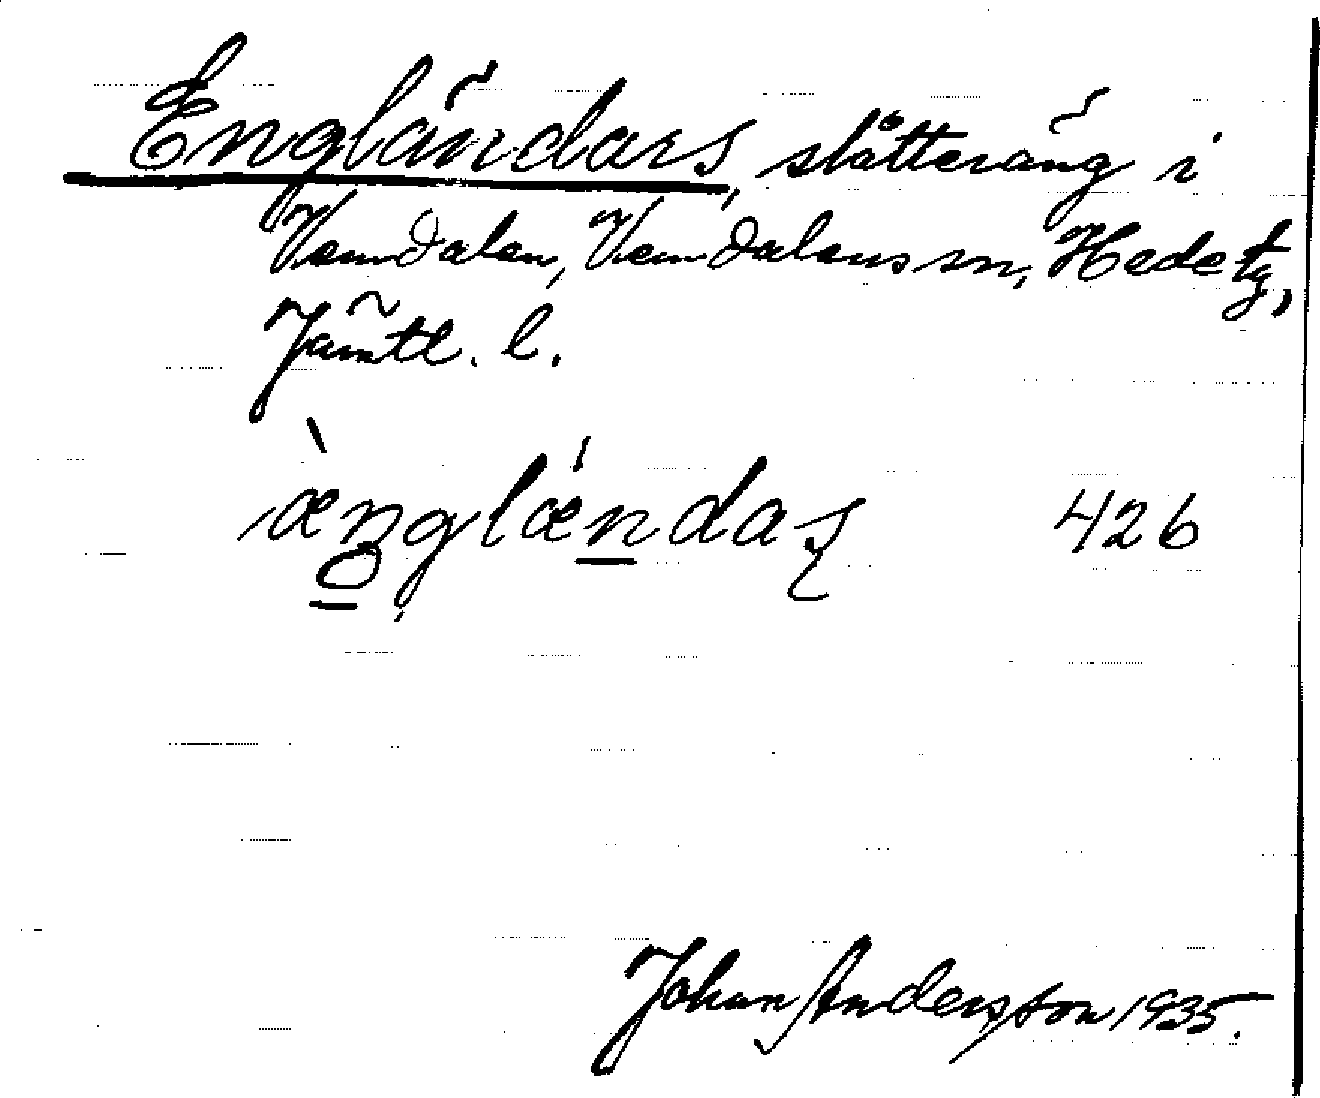 Engländars, slåtteräng i
Vemdalen, Vemdalens sn, Hede tg,
Jämtl. l.
æ̀ŋglǽndaʂ 426
Johan Andersson 1935.